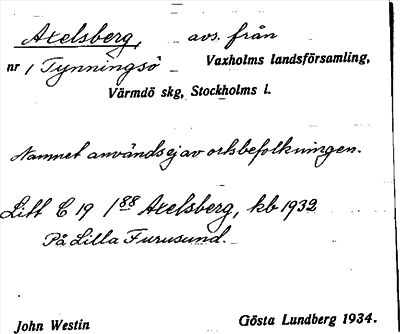 Axelsberg, avs. från
nr 1 Tynningsö Vaxholms landsförsamling,
Värmdö skg, Stockholms l.
Namnet användes ej av ortsbefolkningen.
Litt C 19 1 88 Axelsberg, kb 1932
På Lilla Furusund.
John Westin Gösta Lundberg 1934.